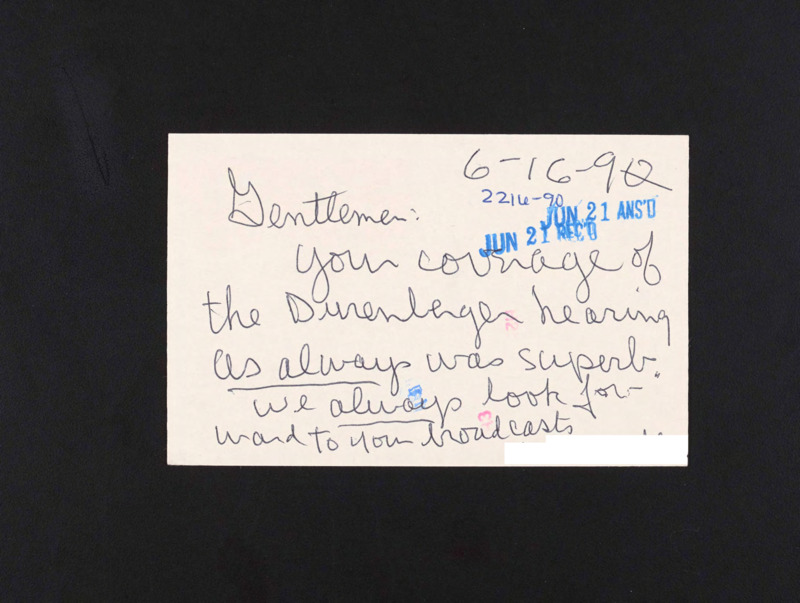 6-16-90
2216-90
Gentlemen:
JUN 21 ANS'D
JUN 21 REC'D
Your coverage of
the Durenberger hearing
as always was superb.
We always look for-
ward to your broadcasts